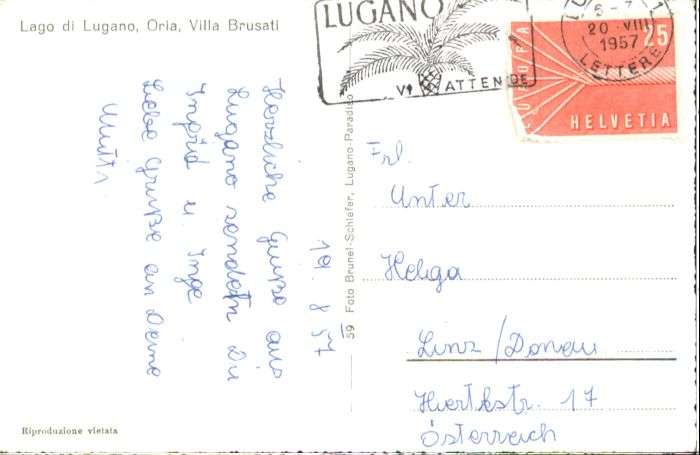 Lago di Lugano, Oria, Villa Brusati
LUGANO
VI ATTENDE
6-7
20·VIII
1957
LETTERE
25
HELVETIA
19. 8 57
Herzliche Grüße aus
Lugano senden Dir
Ingrid u Inge
Liebe Grüße an Deine
Mutti
59 Foto Brunel-Schiefer, Lugano-Paradiso
Frl.
Unter
Helga
Linz/Donau
17
Österreich
Riproduzione vietata